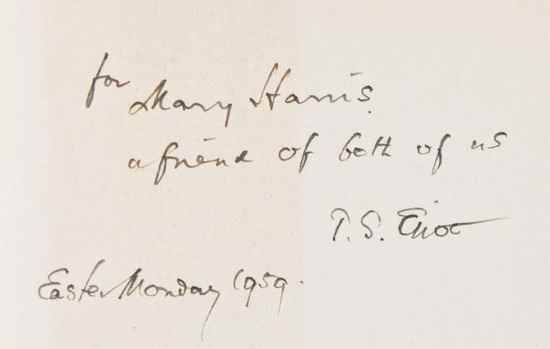 for
Mary Harris.
a friend of both of us
T. S. Eliot
Easter Monday 1959.